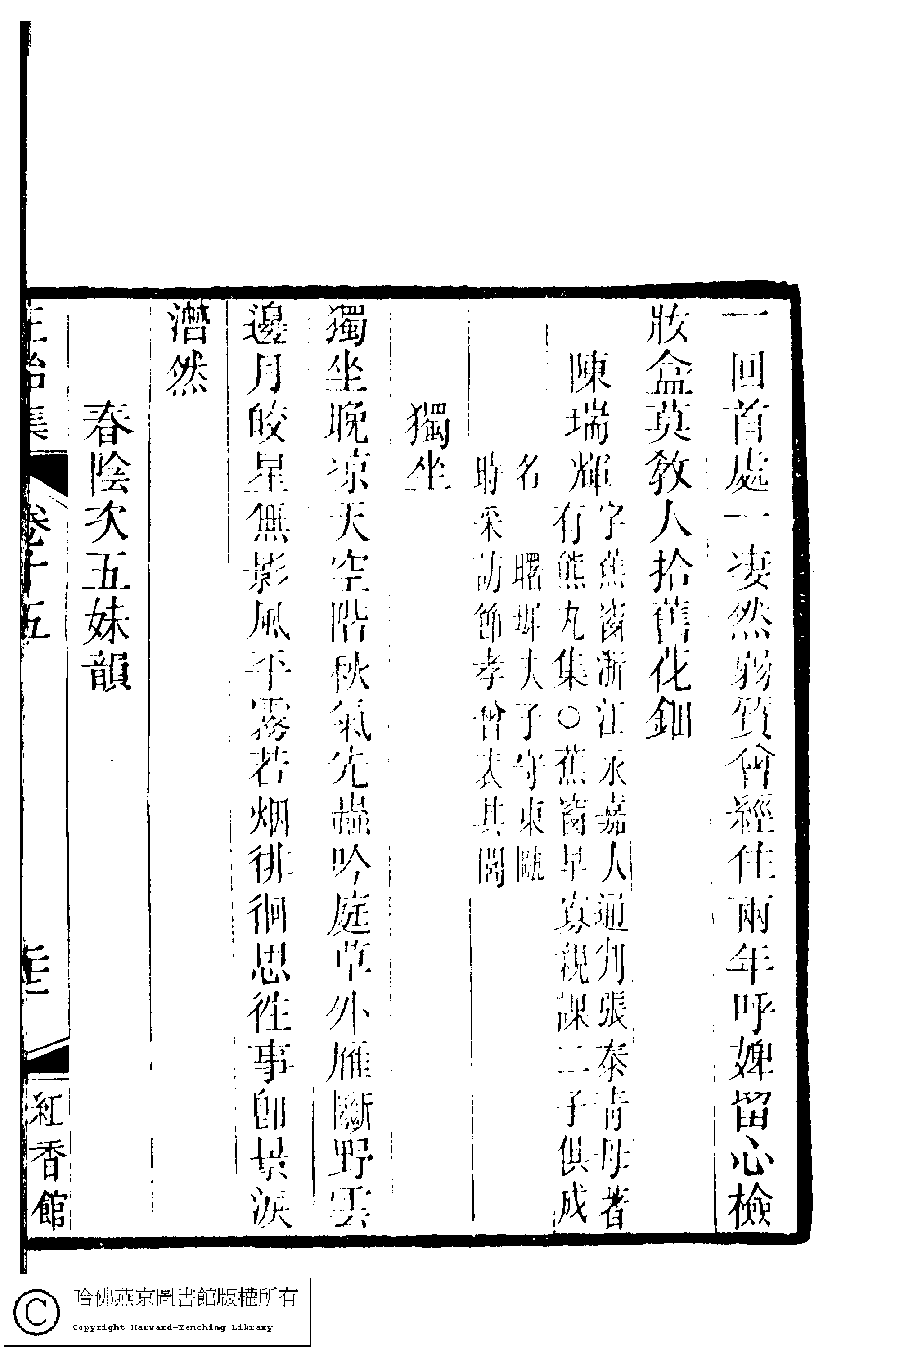 一回首處一凄然弱質曾經住兩年呼婢留心檢
妝盒莫敎人拾舊花鈿
陳瑞輝
字蕉窗浙江永嘉人通判張泰青母著
有熊丸集○蕉窗早寡親課二子俱成
名　曙墀夫子守東甌
時采訪節孝曾表其閭
獨坐
獨坐晚涼天空階秋氣先蟲吟庭草外雁斷野雲
邊月皎星無影風平霧若烟徘徊思徃事卽景淚
潸然
春陰次五妹韻
正始集
卷十五
紅香館
哈佛燕京圖書館版權所有
Copyright Harvard-Yenching Library